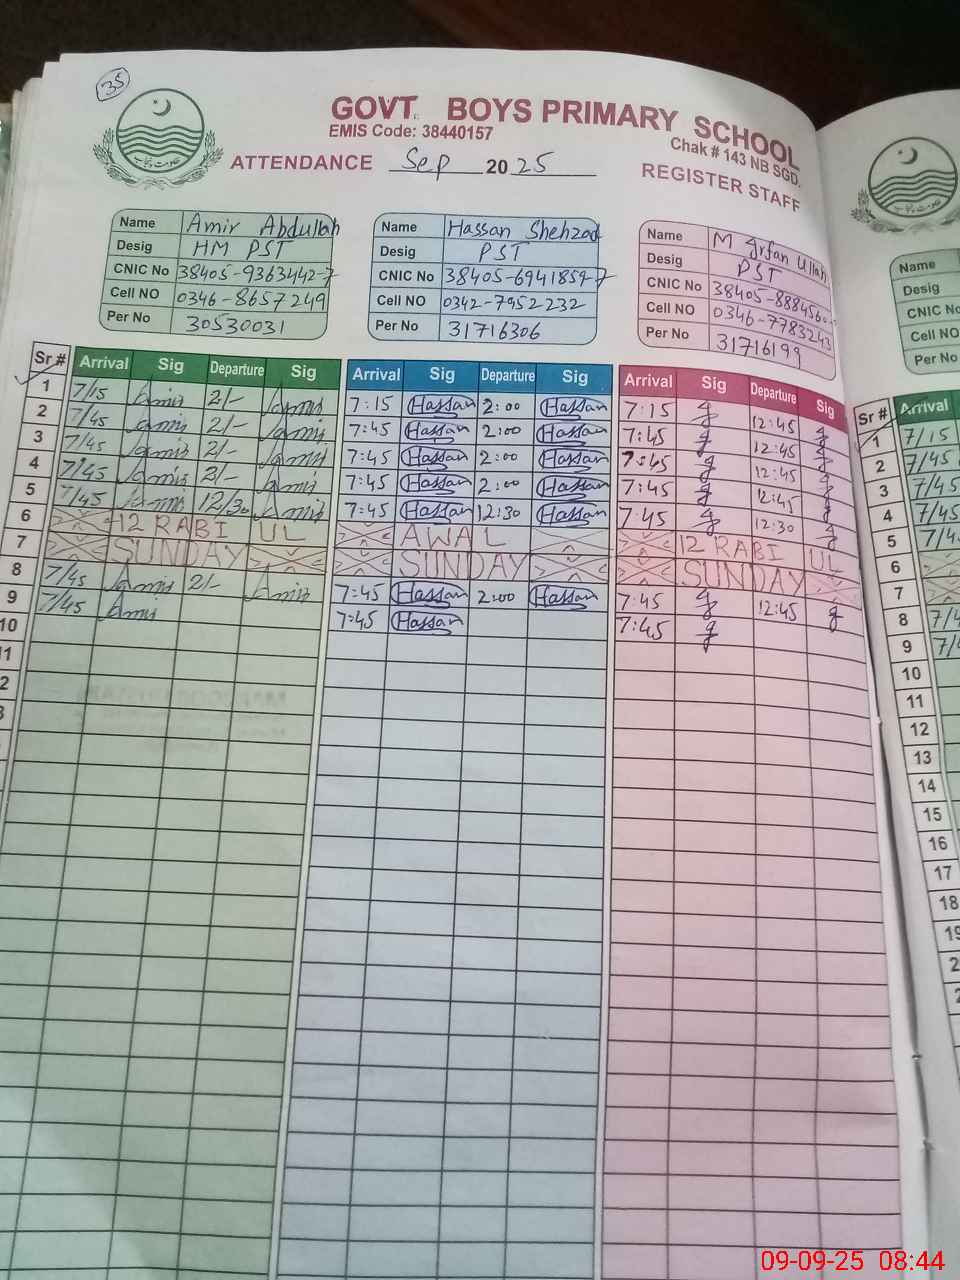 35
GOVT. BOYS PRIMARY SCHOOL
EMIS Code: 38440157
Chak # 143 NB SGD.
ATTENDANCE Sep 2025 REGISTER STAFF
حکومت پنجاب
Name Amir Abdullah
Desig HM PST
CNIC No 38405-9363442-7
Cell NO 0346-8657249
Per No 30530031
Name Hassan Shehzad
Desig PST
CNIC No 38405-6941859-7
Cell NO 0342-7952232
Per No 31716306
Name M Irfan Ullah
Desig PST
CNIC No 38405-8884560
Cell NO 0346-7783243
Per No 31716199
Name
Desig
CNIC No
Cell NO
Per No
Sr # Arrival Sig Departure Sig Arrival Sig Departure Sig Arrival Sig Departure Sig Sr # Arrival
1 7/15 Amir 2/- Amir 7:15 Hassan 2:00 Hassan 7:15 12:45 1 7/15
2 7/45 Amir 2/- Amir 7:45 Hassan 2:00 Hassan 7:45 12:45 2 7/45
3 7/45 Amir 2/- Amir 7:45 Hassan 2:00 Hassan 7:45 12:45 3 7/45
4 7/45 Amir 2/- Amir 7:45 Hassan 2:00 Hassan 7:45 12:45 4 7/45
5 7/45 Amir 12/30 Amir 7:45 Hassan 12:30 Hassan 7:45 12:30 5 7/4
6 12 RABI UL AWAL 12 RABI UL 6
7 SUNDAY SUNDAY SUNDAY 7
8 7/45 Amir 2/- Amir 7:45 Hassan 2:00 Hassan 7:45 12:45 8 7/4
9 7/45 Amir 7:45 Hassan 7:45 9 7/
10 10
11 11
2 12
3 13
14
15
16
17
18
19
2
2
09-09-25 08:44